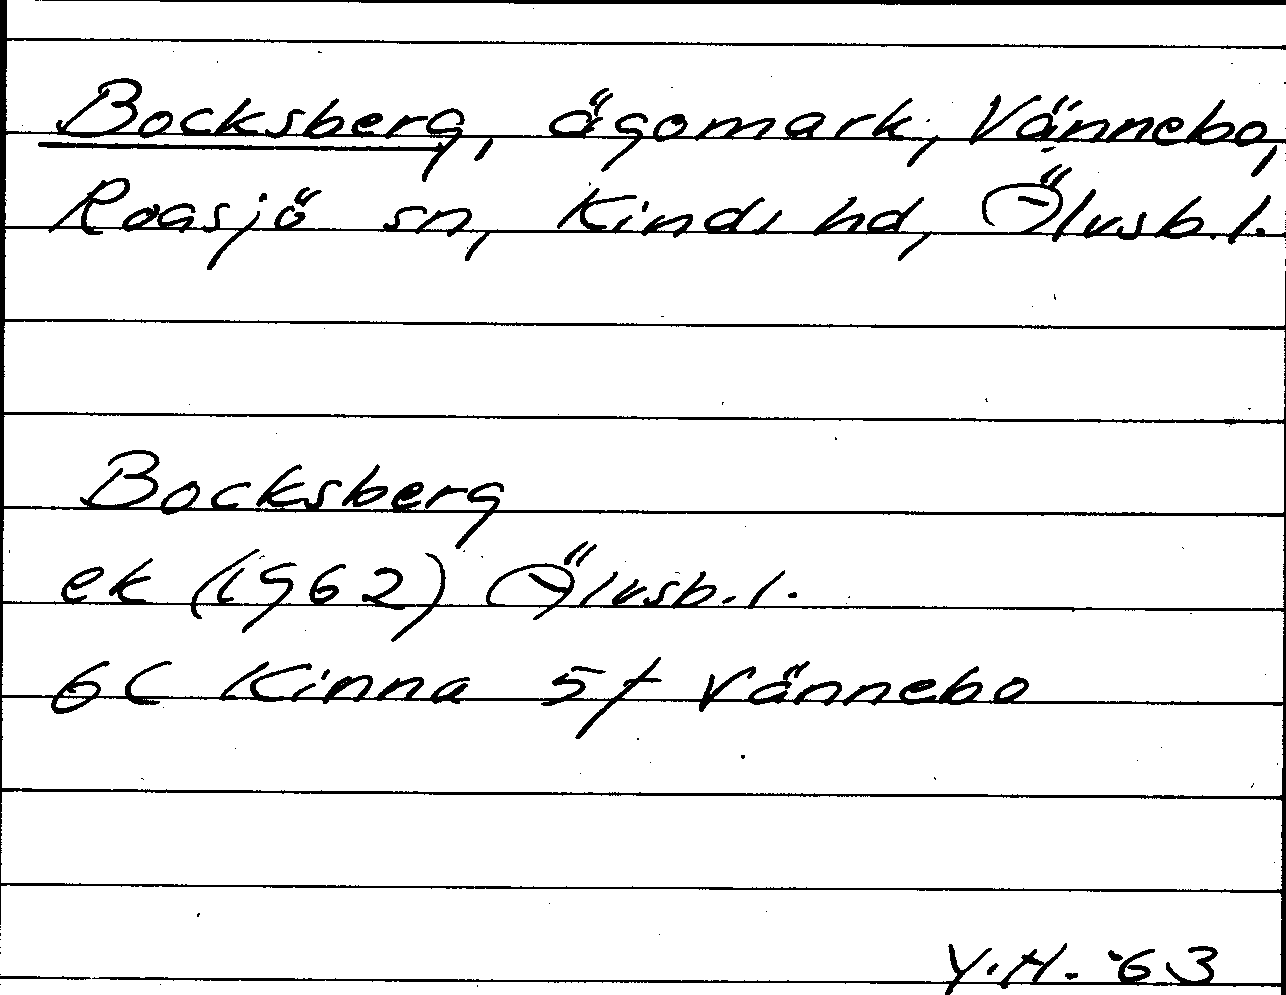 Bocksberg, ägomark, Vännebo,
Roasjö sn, Kinds hd, Älvsb.l.
Bocksberg
ek (1962) Älvsb.l.
6C Kinna 5f Vännebo
Y.H. '63